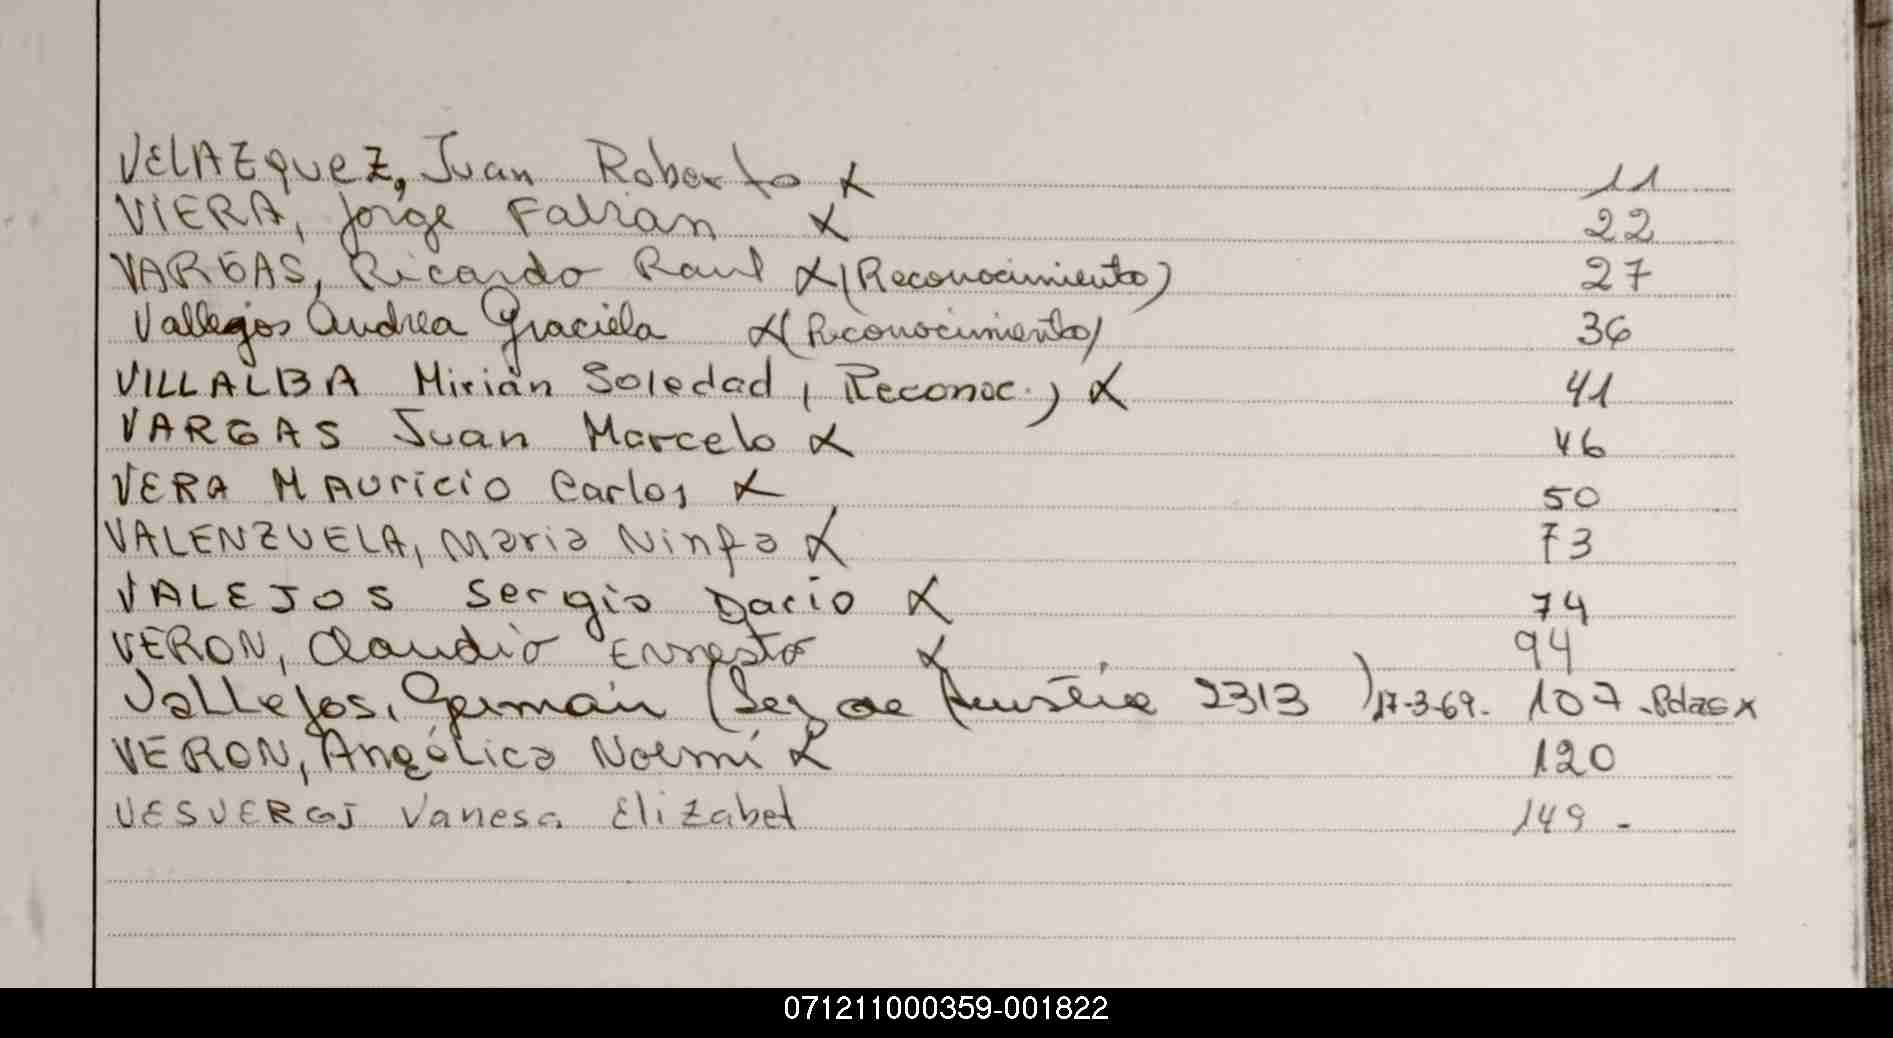 VELAZQUEZ, Juan Roberto X 11
VIERA, Jorge Fabian X 22
VARGAS, Ricardo Raul X (Reconocimiento) 27
Vallegos Andrea Graciela X (Reconocimiento) 36
VILLALBA Mirian Soledad, (Reconoc.) X 41
VARGAS Juan Marcelo X 46
VERA MAURICIO Carlos X 50
VALENZUELA, Maria Ninfa X 73
VALEJOS Sergio Dario X 74
VERON, Claudio Ernesto X 94
Vallejos, Germán ( de 2313 ) 17-3-69. 107 X
VERON, Angélica Noemí X 120
Vanesa Elizabet 149 -
071211000359-001822